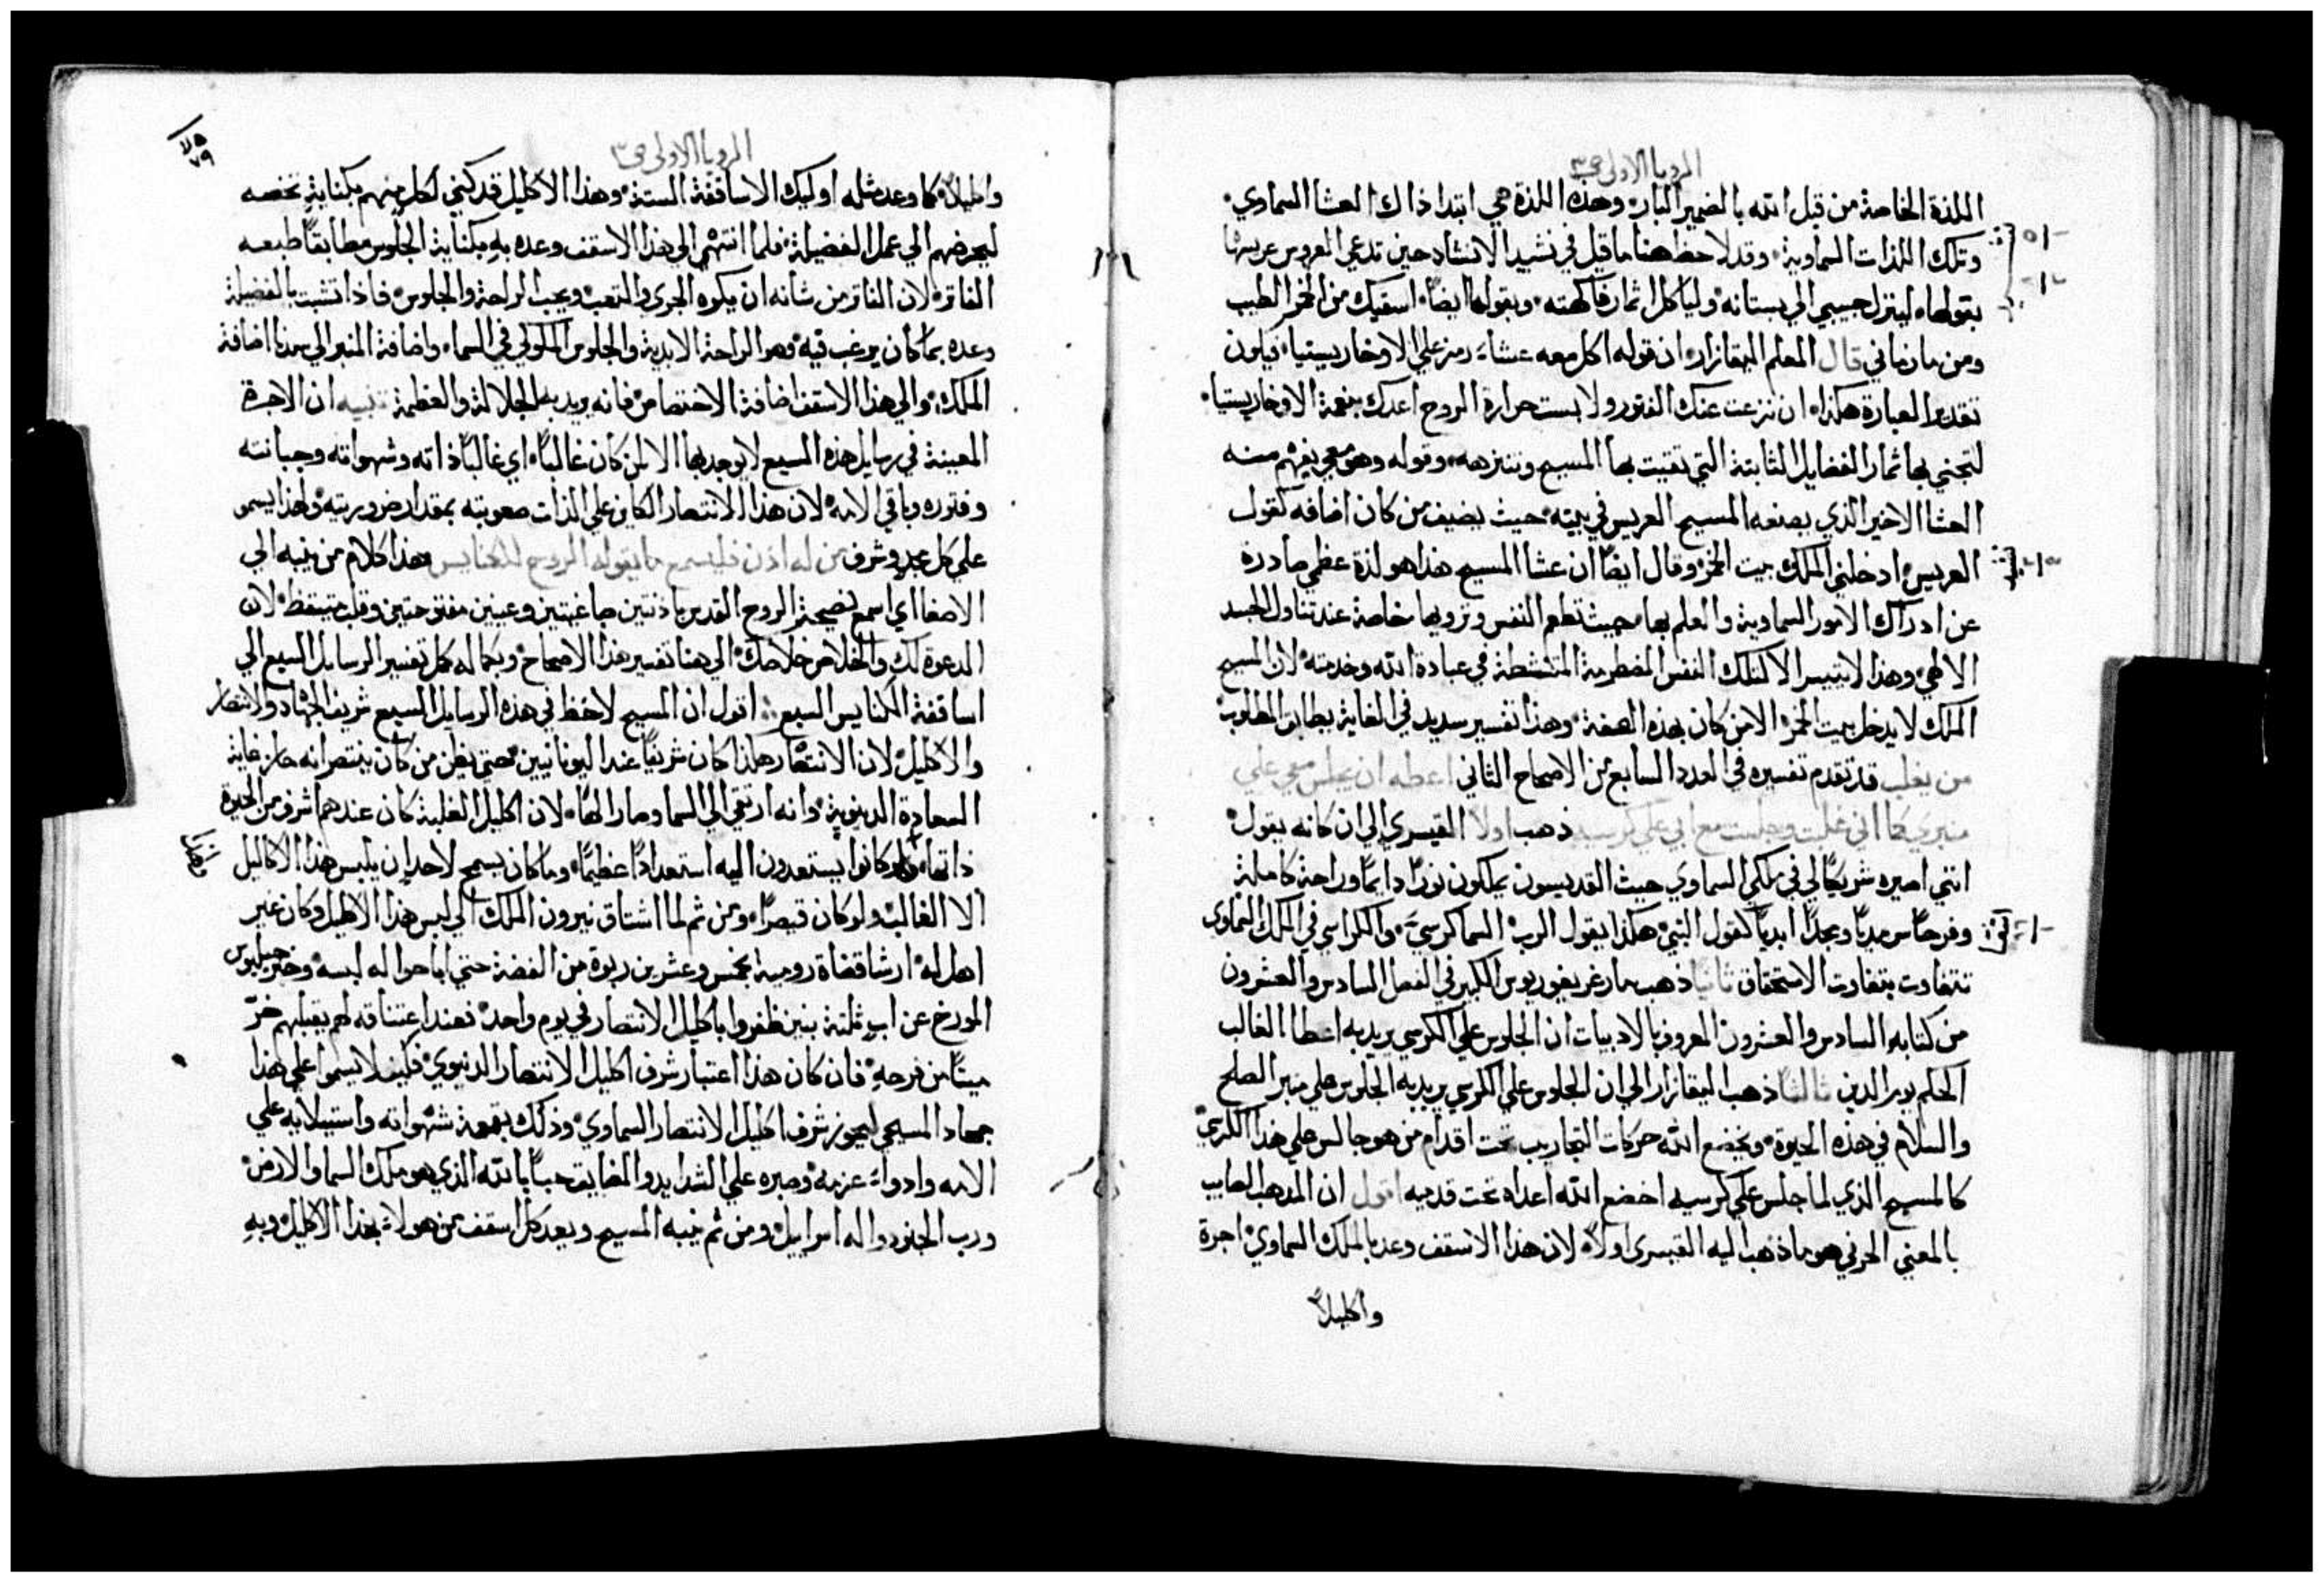 الرويا الاولي ص٣
اللذة الخاصة من قبل الله بالضمير البار. وهذه اللذة هي ابتدا ذاك العشا السماوي.
وتلك اللذات السماوية. وقد لاحظ هنا ما قيل في نشيد الانشاد حين تدعي العروس عريسها
بقولها. لينزل حبيبي الي بستانه. ولياكل اثمار فاكهته. وبقولها ايضاً. اسقيك من الخمر الطيب
ومن ما رماني قال المعلم اليقازار. ان قوله اكل معه عشاءً رمز علي الاوخاريستيا. فيكون
تقدير العبارة هكذا. ان نزعت عنك الفتور ولابست حرارة الروح اعدك بنعمة الاوخاريستيا.
لتجني بها ثمار الفضايل الثابتة التي بقيت بها المسيح وتنزهه. وقوله وهو معي يفهم منه
العشا الاخير الذي يصنعه المسيح العريس في بيته. حيث يضيف من كان اضافه كقول
العريس. ادخلني الملك بيت الخمر. وقال ايضاً ان عشا المسيح هذا هو لذة عظمي صادرة
عن ادراك الامور السماوية والعلم بها. بحيث تطعم النفس وترويها خاصة عند تناول الجسد
الالهي. وهذا لا يتيسر الا لتلك النفس المضطرمة المتنشطة في عبادة الله وخدمته. لان المسيح
الملك لا يدخل بيت الخمر. الا من كان بهذه الصفة. وهذا تفسير سديد في الغاية يطابق المطلوب
من يغلب قد تقدم تفسيره في العدد السابع من الاصحاح الثاني اعطه ان يجلس معي علي
منبري كما اني غلبت وجلست مع ابي علي كرسيه ذهب اولاً القيسري الي ان كانه يقول.
انني اصيره شريكاً لي في ملكي السماوي حيث القديسون يملكون نوراً دايماً وراحة كاملة
وفرحاً سرمدياً ومجداً ابدياً كقول النبي. هكذا يقول الرب. السما كرسيّ. والكراسي في الملك السماوي
تتفاوت بتفاوت الاستحقاق ثانياً ذهب مار غريغوريوس الكبير في الفصل السادس والعشرون
من كتابه السادس والعشرون المعروف بالادبيات ان الجلوس علي الكرسي يريد به اعطا الغالب
الحكم يوم الدين ثالثاً ذهب اليقازار الي ان الجلوس علي الكرسي يريد به الجلوس علي منبر الصلح
والسلام في هذه الحيوة. ويخضع الله حركات التجاريب تحت اقدام من هو جالس علي هذا الكرسي
كالمسيح الذي لما جلس علي كرسيه اخضع الله اعداه تحت قدميه اقول ان المذهب الصايب
بالمعني الحرفي هو ما ذهب اليه القيسري اولاً. لان هذا الاسقف وعد بالملك السماوي. اجرة
واكليلاً
الرويا الاولي ص٣
٧٩
واكليلاً. كما وعد مثله اوليك الاساقفة الستة. وهذا الاكليل قد كني لكل منهم بكناية تخصه
ليحرضهم الي عمل الفضيلة. فلما انتهي الي هذا الاسقف وعده به بكناية الجلوس مطابقاً طبعه
الفاتر. لان الفاتر من شانه ان يكره الجري والتعب. ويحب الراحة والجلوس. فاذا تشبت بالفضيلة
وعده بما كان يرغب فيه. وهو الراحة الابدية والجلوس الملوكي في السما. واضافة المنبر الي سيدنا اضافة
الملك. والي هذا الاسقف اضافة الاختصاص. فانه يريد به الجلالة والعظمة تنبيه ان الاجرة
المعينة في رسايل هذه السبع لا يوعد بها الا لمن كان غالباً. اي غالباً ذاته وشهواته وجبانته
وفتوره وباقي الامه. لان هذا الانتصار الكاين علي الذات صعوبته بمقدار ضروريته. ولهذا يسمو
علي كل مجد وشرف من له اذن فليسمع ما يقوله الروح للكنايس هذا كلام من ينبه الي
الاصغا اي اسمع نصيحة الروح القدس باذنين صاغيتين وعينين مفتوحتين وقلب متيقظ. لان
الدعوة لك والخلاص خلاصك. الي هنا تفسير هذا الاصحاح. وبكماله كمل تفسير الرسايل السبع الي
اساقفة الكنايس السبع. اقول ان المسيح لاحظ في هذه الرسايل السبع شريف الجهاد والانتصار
والاكليل. لان الانتصار هكذا كان شريفاً عند اليونانيين. حتي يظن من كان ينتصر انه حاز غاية
السعادة الدنيوية. وانه ارتقي الي السما وصار الهاً. لان اكليل الغلبة كان عندهم اشرف من الحيوة
ذاتها. ولو كانوا يستعدون اليه استعداداً عظيماً. وما كان يسمح لاحد ان يلبس هذا الاكليل
الا الغالب. ولو كان قيصراً. ومن ثم لما اشتاق نيرون الملك الي لبس هذا الاكليل وكان غير
اهل له. ارشا قضاة رومية بخمس وعشرين ربوة من الفضة حتي اباحوا له لبسه. وخبر جيليوس
المورخ عن اب ثلثة بنين ظفروا باكليل الانتصار في يوم واحد. فعند اعتناقه لهم بقبلهم خرّ
ميتاً من فرحه. فان كان هذا اعتبار شرف اكليل الانتصار الدنيوي. فكيف لا يسموا علي هذا
جهاد المسيحي ليحوز شرف اكليل الانتصار السماوي. وذلك بقمعة شهواته واستيلايه علي
الامه وادواءَ عزمه. وصبره علي الشدايد والمضايق حباً بالله الذي هو ملك السما والارض.
ورب الجنود واله اسراييل. ومن ثم ينبه المسيح ويعد كل اسقف من هولاءِ بهذا الاكليل وبه